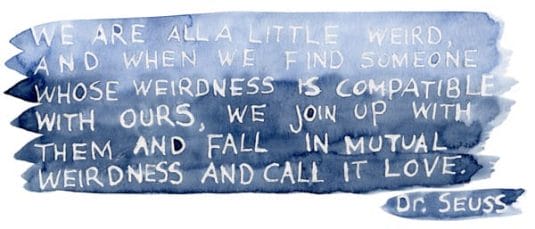 WE ARE ALL A LITTLE WEIRD,
AND WHEN WE FIND SOMEONE
WHOSE WEIRDNESS IS COMPATIBLE
WITH OURS, WE JOIN UP WITH
THEM AND FALL IN MUTUAL
WEIRDNESS AND CALL IT LOVE.
Dr. SEUSS